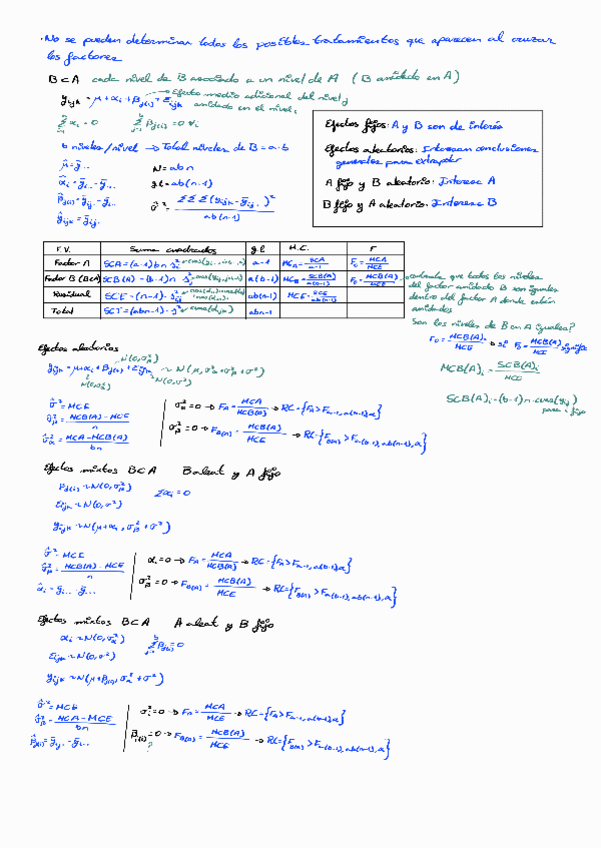 · No se pueden determinar todos los posibles tratamientos que aparecen al cruzar
los factores
B⊂A cada nivel de B asociado a un nivel de A (B anidado en A)
y_ijk = μ + α_i + β_j(i) + ε_ijk → Efecto medio adicional del nivel j
anidado en el nivel i
Σ α_i = 0 Σ β_j(i) = 0 ∀i
b niveles/nivel → Total niveles de B = a·b
μ̂ = ȳ... N = abn
α̂_i = ȳ_i.. - ȳ... gl = ab(n-1)
β̂_j(i) = ȳ_ij. - ȳ_i.. σ̂² = ΣΣΣ(y_ijk - ȳ_ij.)² / ab(n-1)
ŷ_ijk = ȳ_ij.
Efectos fijos: A y B son de interés
Efectos aleatorios: Interesan conclusiones
generales para extrapolar
A fijo y B aleatorio: Interesa A
B fijo y A aleatorio: Interesa B
F.V. Suma cuadrados gl M.C. F
Factor A SCA = (a-1) b n a-1 MCA = SCA/a-1 F_0 = MCA/MCE
Factor B (B⊂A) SCB(A) = (b-1) n a(b-1) MCB = SCB(A)/a(b-1) F_0 = MCB(A)/MCE
Residual SCE = (n-1) ab(n-1) MCE = SCE/ab(n-1)
Total SCT = (abn-1) abn-1
que todos los niveles
del factor anidado B son iguales
dentro del factor A donde están
anidados
Son los niveles de B en A iguales?
F_0 = MCB(A)/MCE → si F_0 = MCB(A)/MCE
MCB(A)_i = SCB(A)_i / MCE
SCB(A)_i = (b-1) n · cuasi(y_ij)
para i fijo
Efectos aleatorios
N(0,σ²_α)
y_ijk = μ + α_i + β_j(i) + ε_ijk ~ N(μ, σ²_α + σ²_β + σ²)
N(0,σ²_β) N(0,σ²)
σ̂² = MCE
σ̂²_β = MCB(A) - MCE / n
σ̂²_α = MCA - MCB(A) / bn
σ²_α = 0 → F_A = MCA/MCB(A) → RC = {F_A > F_a-1, a(b-1), α}
σ²_β = 0 → F_B(A) = MCB(A)/MCE → RC = {F_B(A) > F_a(b-1), ab(n-1), α}
Efectos mixtos B⊂A B aleat y A fijo
β_j(i) ~ N(0,σ²_β) Σα_i = 0
ε_ijk ~ N(0,σ²)
y_ijk ~ N(μ + α_i, σ²_β + σ²)
σ̂² = MCE
σ̂²_β = MCB(A) - MCE / n
α̂_i = ȳ_i.. - ȳ...
α_i = 0 → F_A = MCA/MCB(A) → RC = {F_A > F_a-1, a(b-1), α}
σ²_β = 0 → F_B(A) = MCB(A)/MCE → RC = {F_B(A) > F_a(b-1), ab(n-1), α}
Efectos mixtos B⊂A A aleat y B fijo
α_i ~ N(0,σ²_α) Σ β_j(i) = 0
ε_ijk ~ N(0,σ²)
y_ijk ~ N(μ + β_j(i), σ²_α + σ²)
σ̂² = MCE
σ̂²_β = MCA - MCE / bn
β̂_j(i) = ȳ_ij. - ȳ_i..
σ²_i = 0 → F_A = MCA/MCE → RC = {F_A > F_a-1, a(b-1), α}
β_j(i) = 0 → F_B(A) = MCB(A)/MCE → RC = {F_B(A) > F_a(b-1), ab(n-1), α}